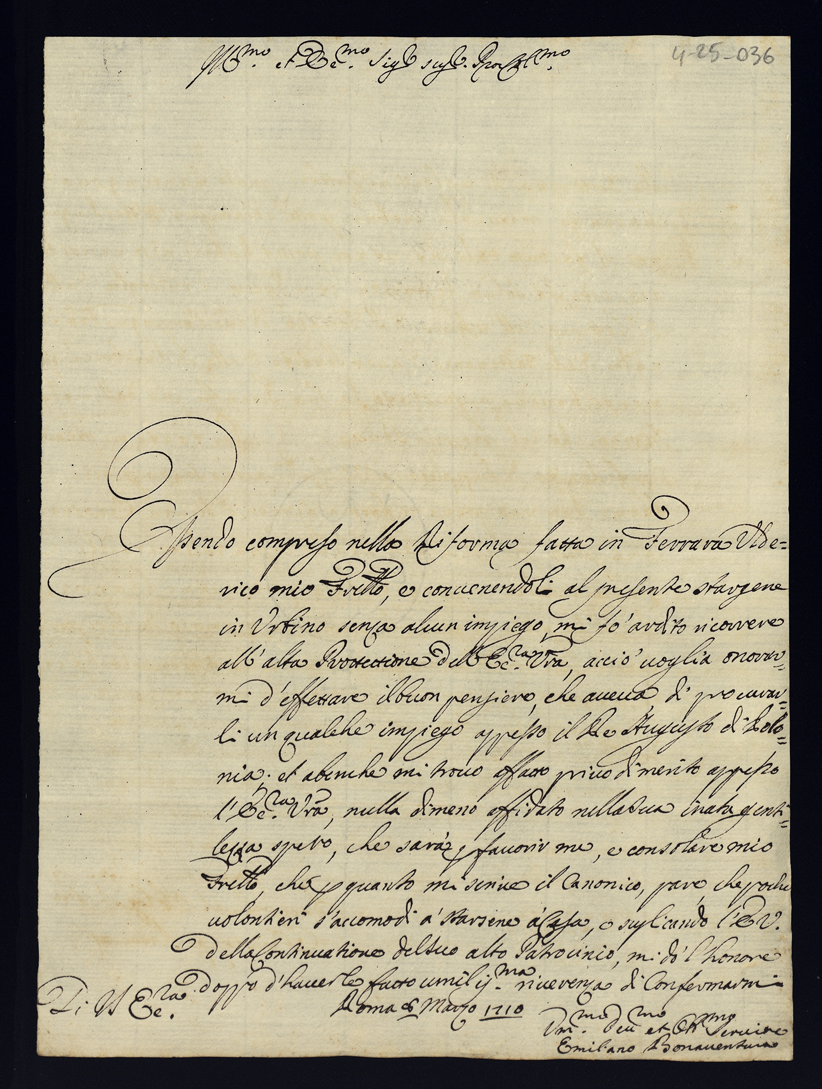 Ill.mo et Ecc.mo Sig.r sig.r Pron Col.mo
4-25-036
Essendo compreso nella Riforma fatta in Ferrara Vlde=
rico mio Frello, e conuenendoli al presente starsene
in Vrbino senza alcun impiego, mi fò ardito ricorrere
all'alta Protectione dell'Ecc.za Vra, acciò uoglia onorar=
mi d'effettare il buon pensiero, che aueua di procurar=
li un qualche impiego appesso il Re Augusto di Polo=
nia; et abenche mi trouo affatto priuo di merito appesso
l'Ecc.za Vra, nulla dimeno affidato nella sua inata genti=
lezza spero, che sarà p fauorir me, e consolare mio
Frello, che p quanto mi scriue il Canonico, pare, che poche
uolontieri s'accomodi à starsene à Casa, e suplicando l'E.V.
della Continuatione del suo alto Patrocinio, mi dò l'honore
doppo d'hauerle fatto umiliss.ma riuerenza di Confermarmi
Di V Ecc.za
Roma 8 Marzo 1710
Dev.mo et Obl.mo Seruitore
Emiliano Bonauentura